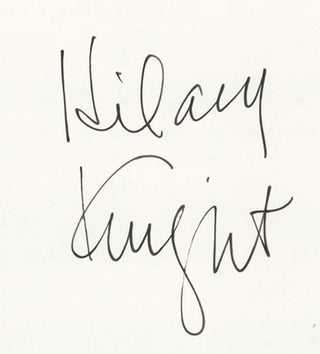 Hilary
Knight